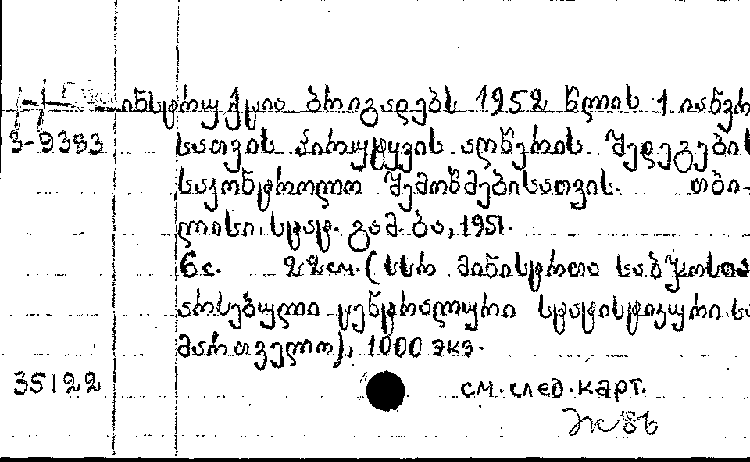 ინსტრუქცია ბრიგადებს 1952 წლის 1 იანვრი
3-9383 სათვის პირუტყვის აღწერის შედეგების
საკონტროლო შემოწმებისათვის. თბი-
ლისი, სტატ. გამ-ბა, 1951.
6 с. 22 см. (სსრ მინისტრთა საბჭოსთა
არსებული ცენტრალური სტატისტიკური სა
მართველო), 1000 экз.
35122 см. след. карт.